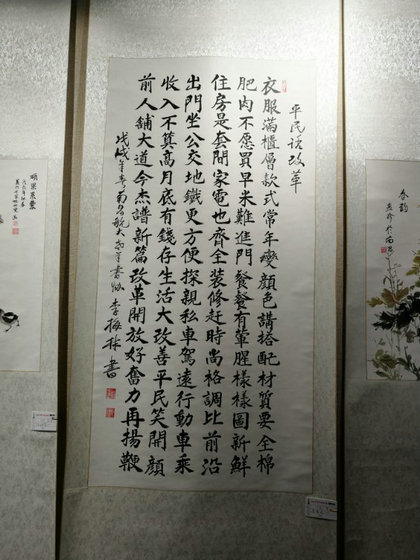 平民话改革
衣服滿櫃層款式常年變顏色講搭配材質要全棉
肥肉不愿買早米難進門餐餐有葷腥樣樣圖新鮮
住房是套間家電也齊全裝修赶時尚格調比前沿
出門坐公交地鐵更方便探親私車駕遠行動車乘
收入不算高月底有錢存生活大改善平民笑開顏
前人舖大道今杰譜新篇改革開放好奮力再揚鞭
戊戌年春南昌航大老年書协李梅林書
碩果累累